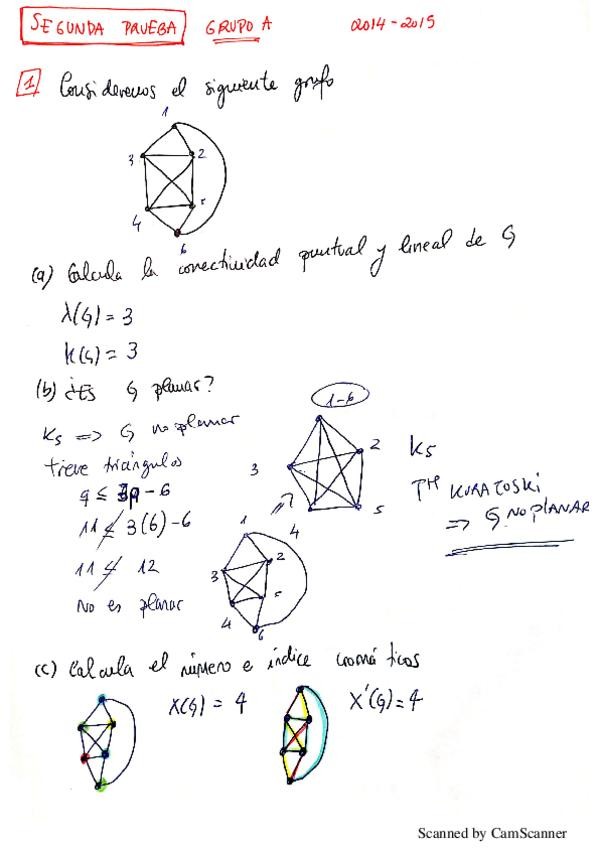 SEGUNDA PRUEBA GRUPO A 2014-2015
1 Consideremos el siguiente grafo
1
3 2
4 5
6
(a) Calcula la conectividad puntual y lineal de G
λ(G) = 3
K(G) = 3
(b) ¿Es G planar?
K5 => G no planar
tiene triángulos
q ≤ 3p - 6
11 ≰ 3(6) - 6
11 ≰ 12
No es planar
1-6
3 2
4 5
K5
TH KURATOSKI
=> G NO PLANAR
1
3 2
4 5
6
(c) Calcula el número e índice cromáticos
X(G) = 4 X'(G) = 4
Scanned by CamScanner